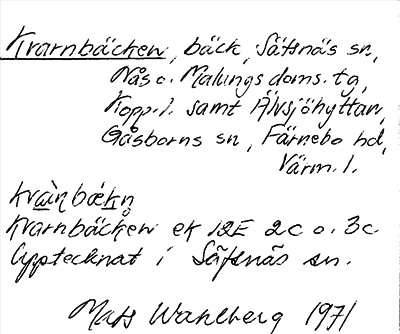 Kvarnbäcken, bäck, Säfsnäs sn,
Nås o. Malungs doms. tg,
Kopp. l. samt Älvsjöhyttan,
Gåsborns sn, Färnebo hd,
Värm. l.
Kvarnbäcken ek 12E 2c o. 3c.
Upptecknat i Säfsnäs sn.
Mats Wahlberg 1971